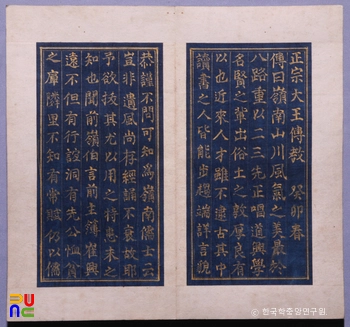 正宗大王傳教 癸卯春
傳曰嶺南山川風氣之美最於
八路重以二三先正唱道興學
名賢之輩出俗土之敦厚良有
以也近來人才雖不逮古其中
讀書之人皆能步趨端詳言貌
恭謹不問可知為嶺南儒士云
豈非遺風尚存經誦不衰故耶
予欲拔其尤以用之待患未之
知也聞前嶺伯言前主簿崔興
遠不但有行誼洞有先公恤貧
之庫隣里不知有常賦仍以儒
한국학중앙연구원